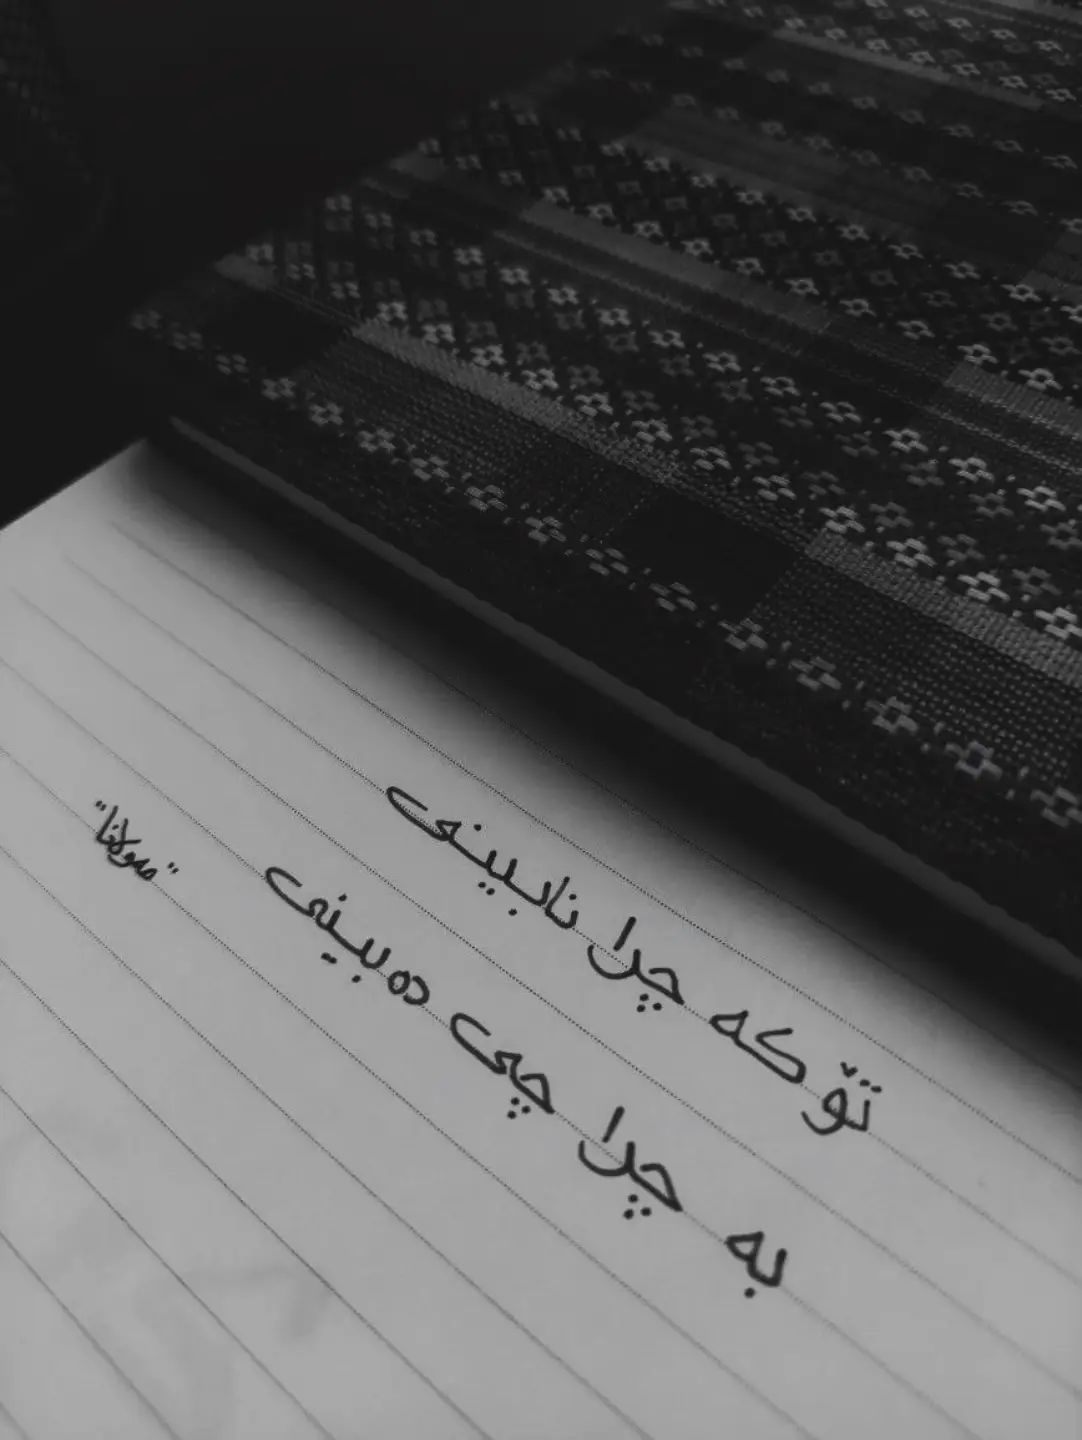 تۆ که چرا نابینی
به چرا چی ده بینی
"مەولانا"